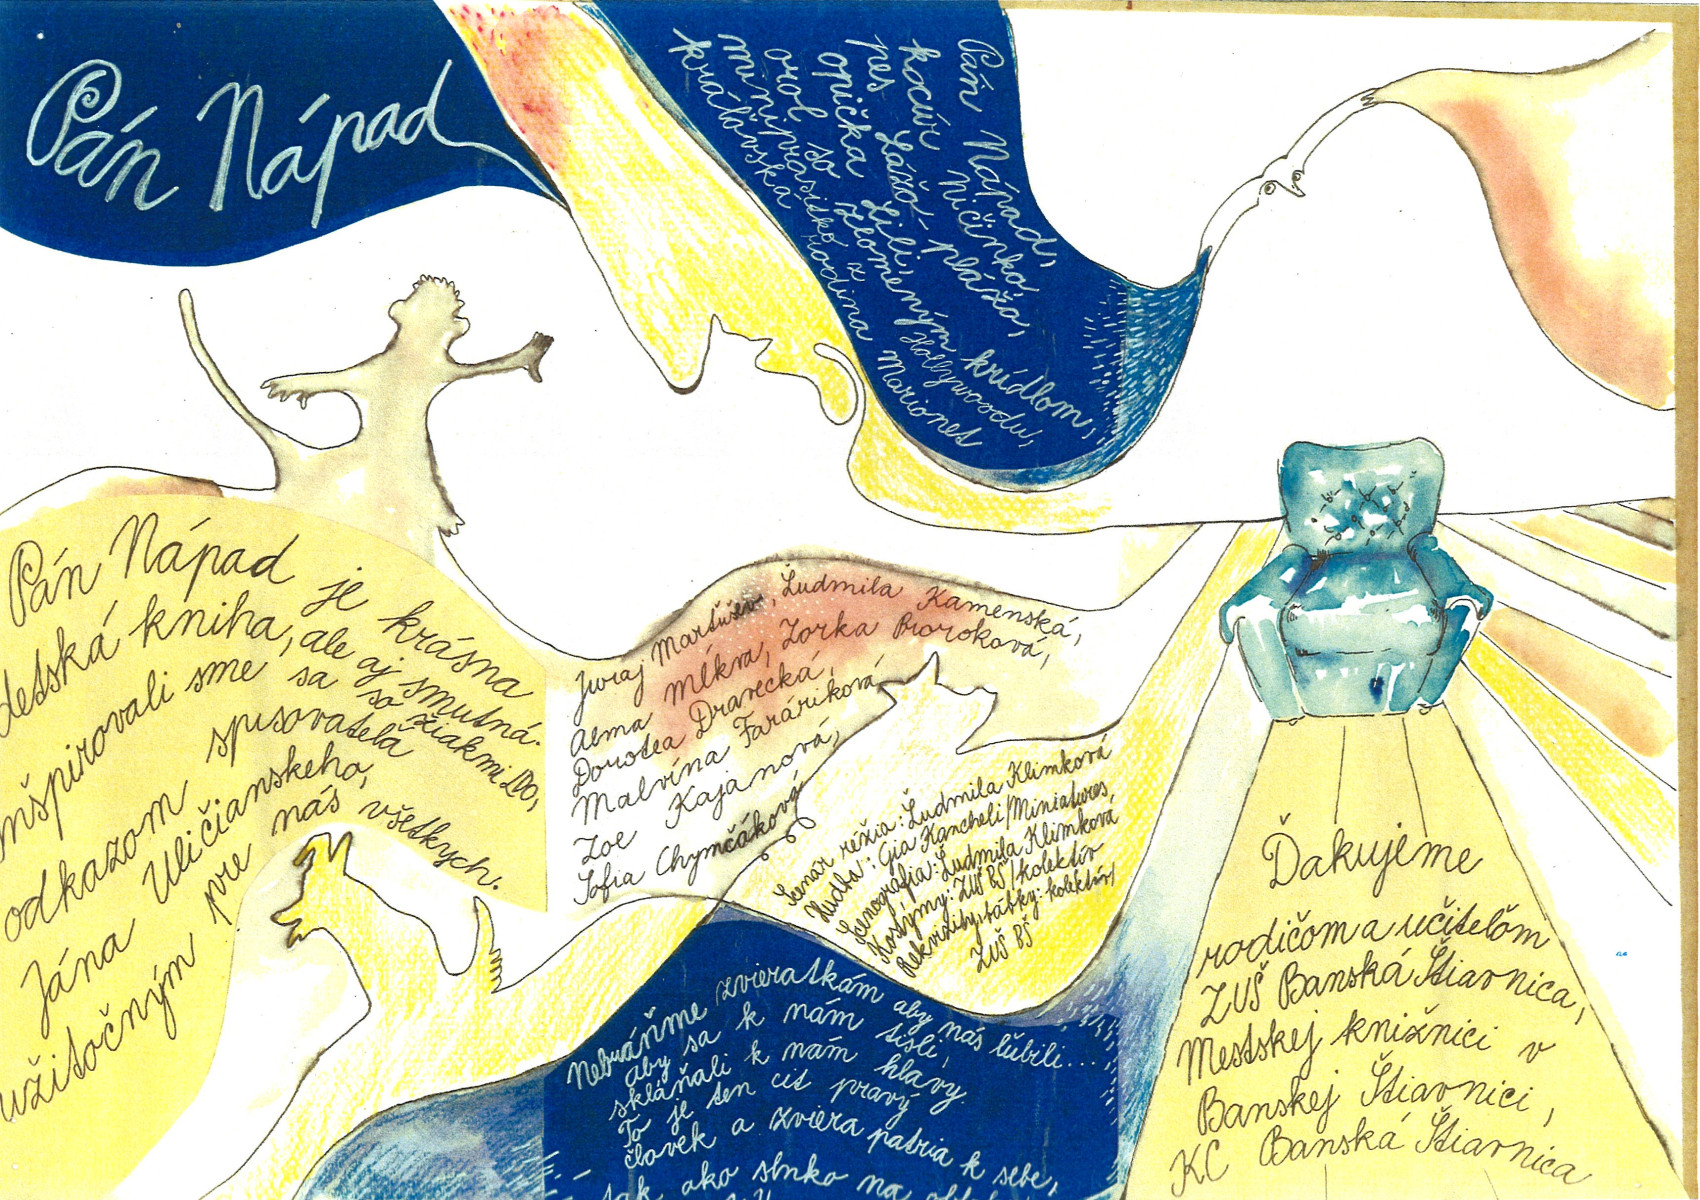 Pán Nápad
Pán Nápad,
kocúr Ničinko,
pes Lážo-plážo,
opička Lili,
orol so zlomeným krídlom,
miniprasiatko z Hollywoodu,
kráľovská rodina Marionet
Pán Nápad je krásna
detská kniha, ale aj smutná.
Inšpirovali sme sa so žiakmi LDO,
odkazom spisovateľa
Jána Uličianskeho,
užitočným pre nás všetkých.
Juraj Martúšev, Ľudmila Kamenská,
Alma Mĺkva, Zorka Proroková,
Dorotea Dravecká,
Malvína Faráriková,
Zoe Kajanová,
Sofia Chymčáková
Scenár réžia: Ľudmila Klimková
Hudba: Gia Kancheli/Miniatures
Scénografia: Ľudmila Klimková
Kostýmy: ZUŠ BŠ/kolektív
Rekvizity, bábky: kolektív/
ZUŠ BŠ
Nebráňme zvieratkám aby nás ľúbili...,
aby sa k nám tisli,
skláňali k nám hlavy.
To je ten cit pravý
človek a zviera patria k sebe,
tak ako slnko na
Ďakujeme
rodičom a učiteľom
ZUŠ Banská Štiavnica,
Mestskej knižnici v
Banskej Štiavnici,
KC Banská Štiavnica